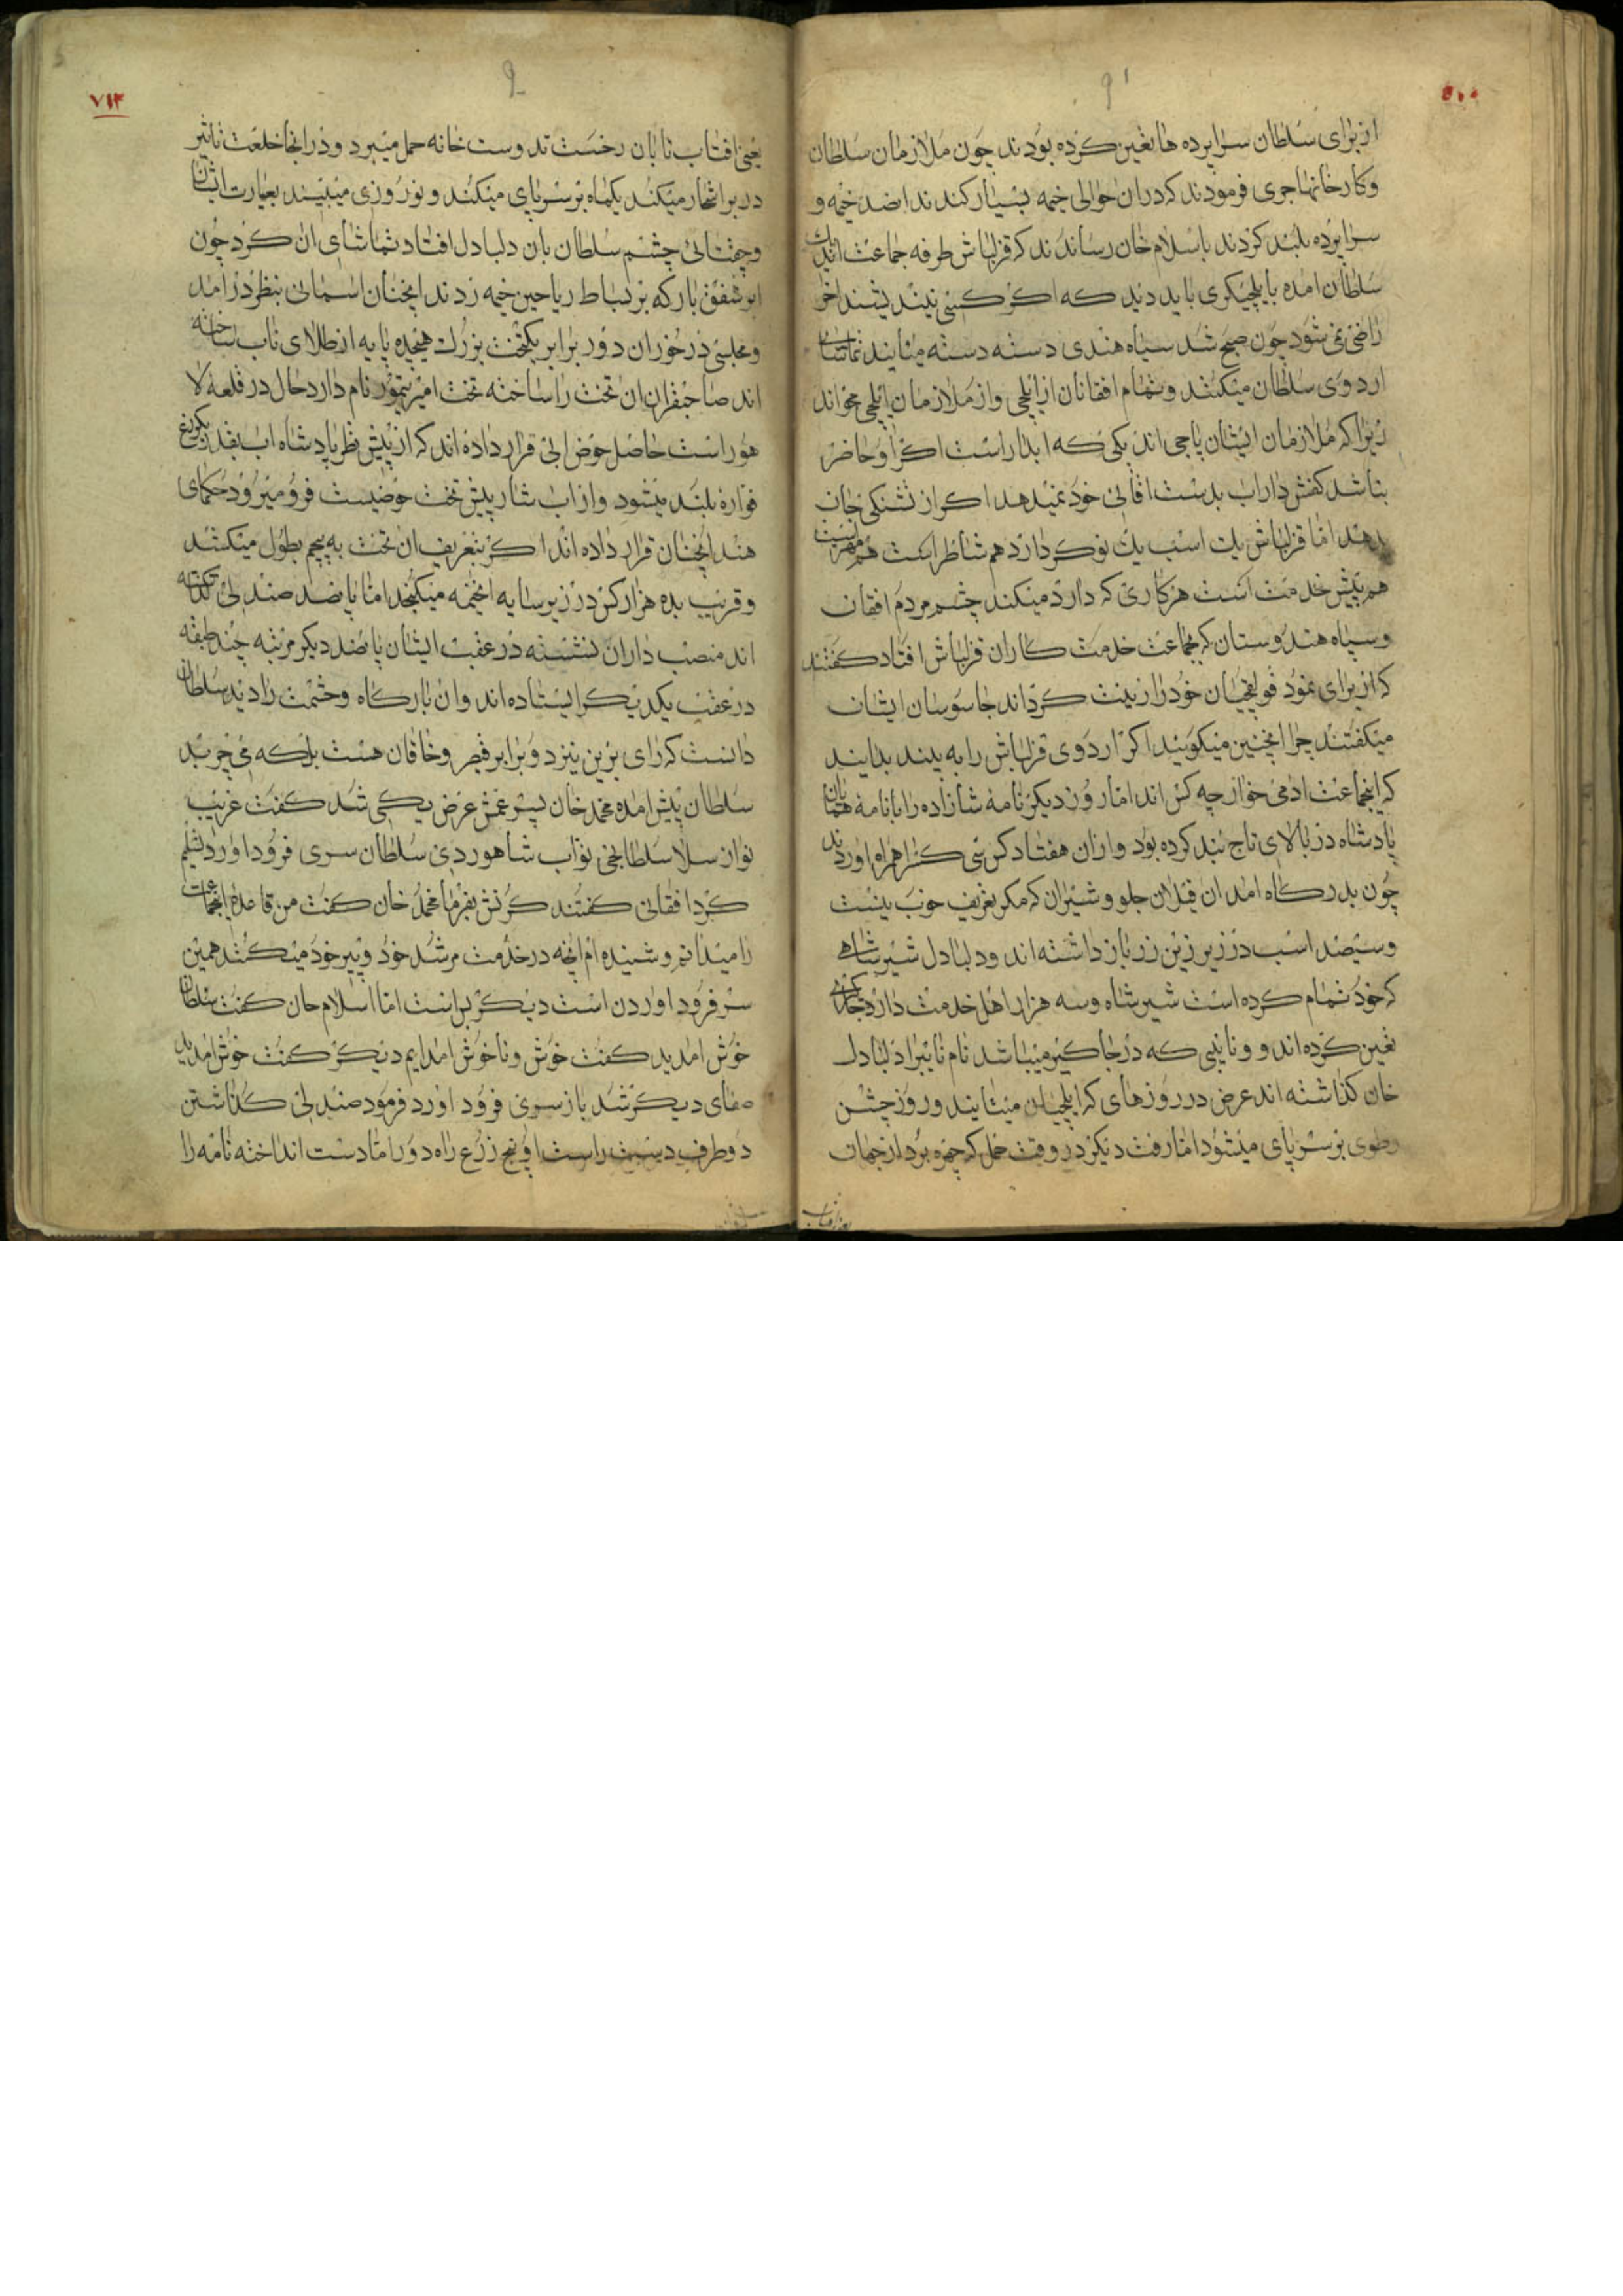 از برای سلطان سراپرده ها تعین کرده بودند چون ملازمان سلطان
وکارخانها جری فرمودند که دران حوالی خیمه بسیار کندند اضد خیمه و
سراپرده بلند کردند باسلام خان رساندند که قزلباش طرفه جماعت اندیک
سلطان امده بایلچیکری باید دید که اکر کسی نیند یشند اخر
راضی نمی شود چون صبح شد سپاه هندی دسته دسته میایند تماشای
اردوی سلطان میکنند وتمام افقانان از ایلچی واز ملازمان ایلچی میخواند
زیرا که ملازمان ایشان پاجی اند یکی که ابدار است اکر او حاضر
نباشد کفش داراب بدست اقای خود نمیدهد اکر از تشنکی جان
بدهد اما قزلباش یک اسب یک نوکر دارد هم شاطر است هم مهتر است
هم پیش خدمت است هر کاری که دارد میکند چشم مردم افقان
وسپاه هندوستان که بجماعت خدمت کاران قزلباش افتاد کفتند
که از برای نمود قولقچیان خود را زینت کرد اند جاسوسان ایشان
میکفتند چرا اینچنین میکویند اکر اردوی قزلباش را به بیند بدانید
که اینجماعت ادمی خوار چه کس اند اما روز دیکر نامه شازاده را با نامه همایان
پادشاه در بالای تاج بند کرده بود وازان هفتاد کس سی کس را همراه اوردند
چون بدرکاه امد ان فیلان جلو وشیران که مکر تعریف خوب نیست
وسیصد اسب در زیر زین زر باز داشته اند ودلبادل شیر شاهی
که خود تمام کرده است شیر شاه وسه هزار اهل خدمت دارد جاکیر
تعین کرده اند و ونایبی که در جاکیر میباشد نام نایب را دلبادل
خان کذاشته اند عرض در روزهای که ایلچیان میایند وروز جشن
وطوی بر سر پای میشود اما رفت دیکر در وقت حمل که چهره برد از جهان
یعنی افتاب تابان رخست تد وست خانه حمل میبرد ودر انجا خلعت تاثیر
در بر اشجار میکند یکماه بر سر پای میکنند و نوروزی میبیند بعبارت ایشان
وچقتائی چشم سلطان بان دلبادل افتاد تماشای ان کرد چون
ابر شفق بار که بر بساط ریاحین خیمه زدند اینچنان اسمانی بنظر درامد
ومجلسی در خوران دور برابر یکتخت بزرک هیجده پایه از طلای ناب ساخته
اند صاحبقران ان تخت را ساخته تخت امیر تیمور نام دارد حال در قلعه لا
هور است حاصل حوض ابی قرار داده اند که از پیش نظر پادشاه اب بقد یکوزع
فواره بلند میشود واز اب شار پیش تخت حوضیست فرو میرود حکمای
هند اینچنان قرار داده اند اکر بتعریف ان تخت به پیچم بطول میکشد
وقریب بده هزار کس در زیر سایه انخیمه میکنجد اما پا نصد صندلی نکداشته
اند منصب داران نشسته در عقب ایشان پا نصد دیکر مرتبه چند طبقه
در عقب یکدیکر ایستاده اند وان بارکاه وحشمت را دید سلطان
دانست که رای برین نیزد وبرابر قیصر وخاقان هست بلکه می چربد
سلطان پیش امده محمد خان پسر عمش عرض بیکی شد کفت غریب
نواز سلا سلطانجی نواب شاهوردی سلطان سری فرود اورد وتسلیم
کرد افقانی کفتند کرنش بفرما محمد خان کفت من قاعده اینجماعت
را میدانم وشنیده ام انچه در خدمت مرشد خود وپیر خود میکنند همین
سر فرود اوردن است دیکر براست اما اسلام خان کفت سلطان
خوش امدید کفت خوش وناخوش امدایم دیکر کفت خوش امدید
صفای دیکر شد باز سری فرود اورد فرمود صندلی کذاشتن
دوطرف دست راست او پنج زرع راه دور اما دست انداخته نامه را